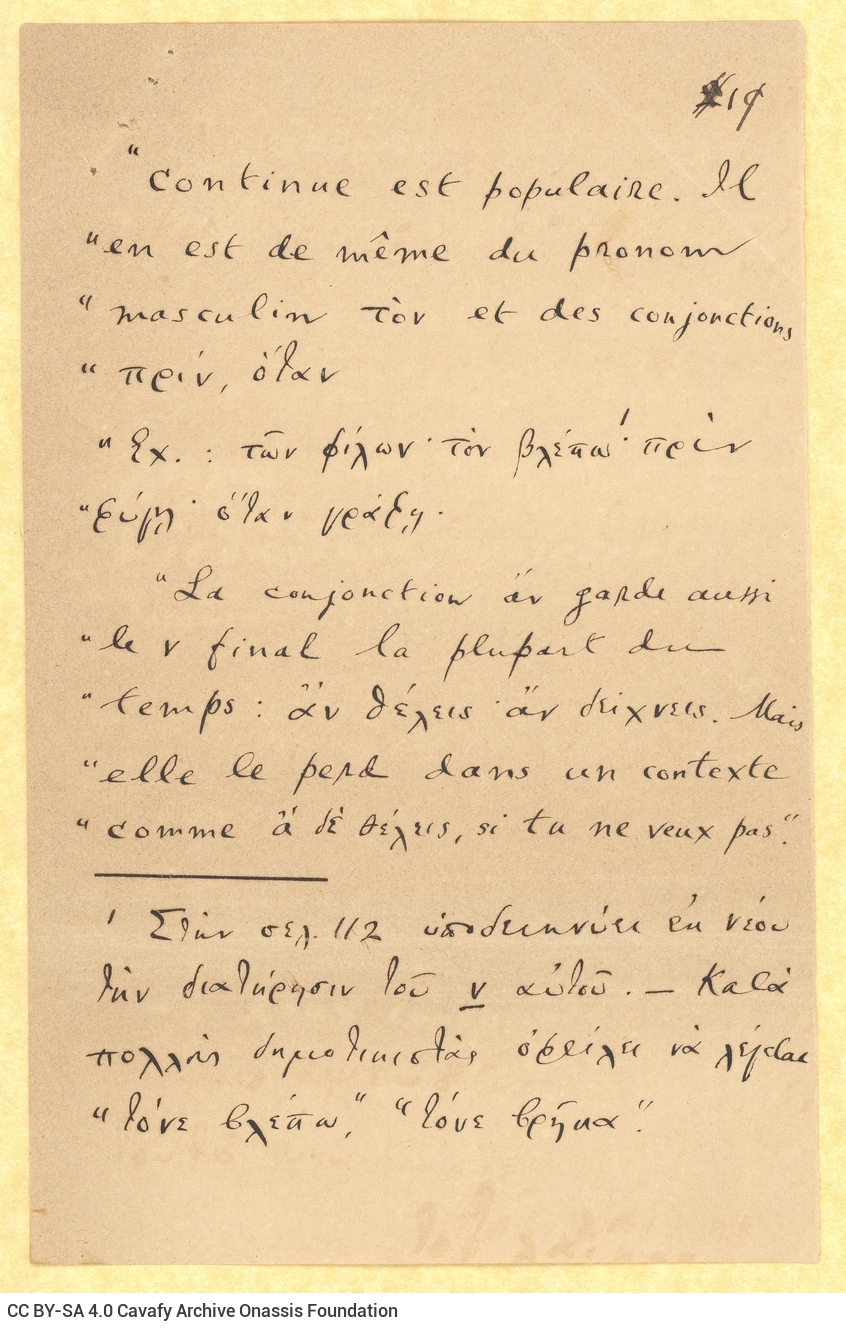 19
"continue est populaire. Il
"en est de même du pronom
"masculin τὸν et des conjonctions
"πρίν, ὅταν
"Ex. : τῶν φίλων· τὸν βλέπω¹· πρὶν
"φύγῃ· ὅταν γράφῃ.
"La conjonction ἄν garde aussi
"le ν final la plupart du
"temps : ἂν θέλεις· ἂν δείχνεις. Mais
"elle le perd dans un contexte
"comme ἂ δὲ θέλεις, si tu ne veux pas".
¹ Στὴν σελ. 112 ὑποδεικνύει ἐκ νέου
τὴν διατήρησιν τοῦ ν αὐτοῦ. — Κατὰ
πολλοὺς δημοτικιστὰς ὀφείλει νὰ λέγεται
"τόνε βλέπω", "τόνε βρῆκα".
CC BY-SA 4.0 Cavafy Archive Onassis Foundation